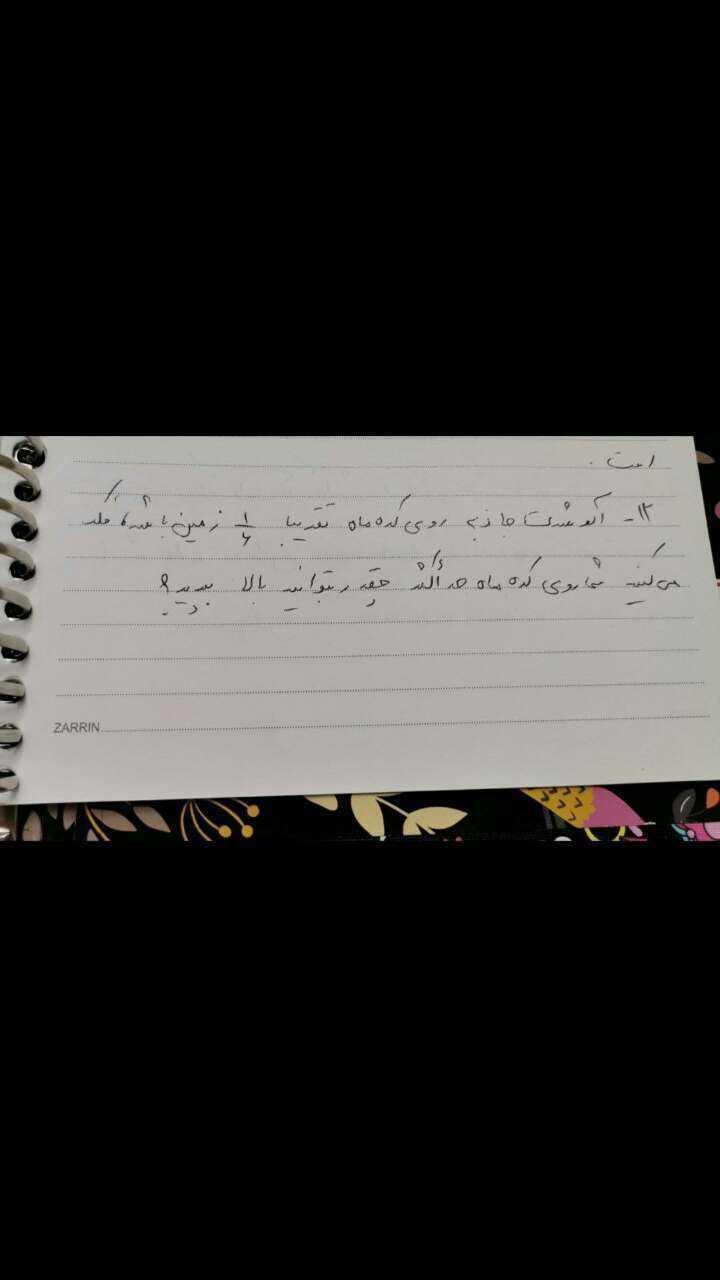 است .
۱۲- اگر شدت جاذبه روی کره ماه تقریبا ۱/۶ زمین باشد، فکر
می‌کنید شما روی کره ماه حداکثر چقدر بتوانید بالا بپرید؟
ZARRIN